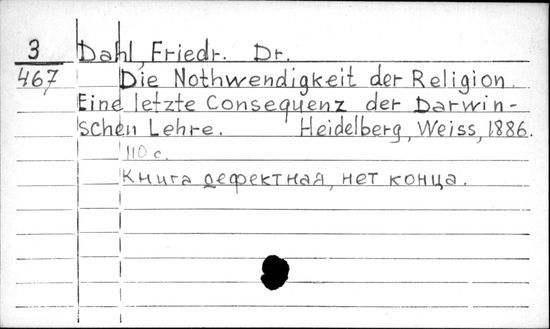 3 Dahl, Friedr. Dr.
467 Die Nothwendigkeit der Religion.
Eine letzte Consequenz der Darwin-
schen Lehre. Heidelberg, Weiss, 1886.
110 с.
Книга дефектная, нет конца.